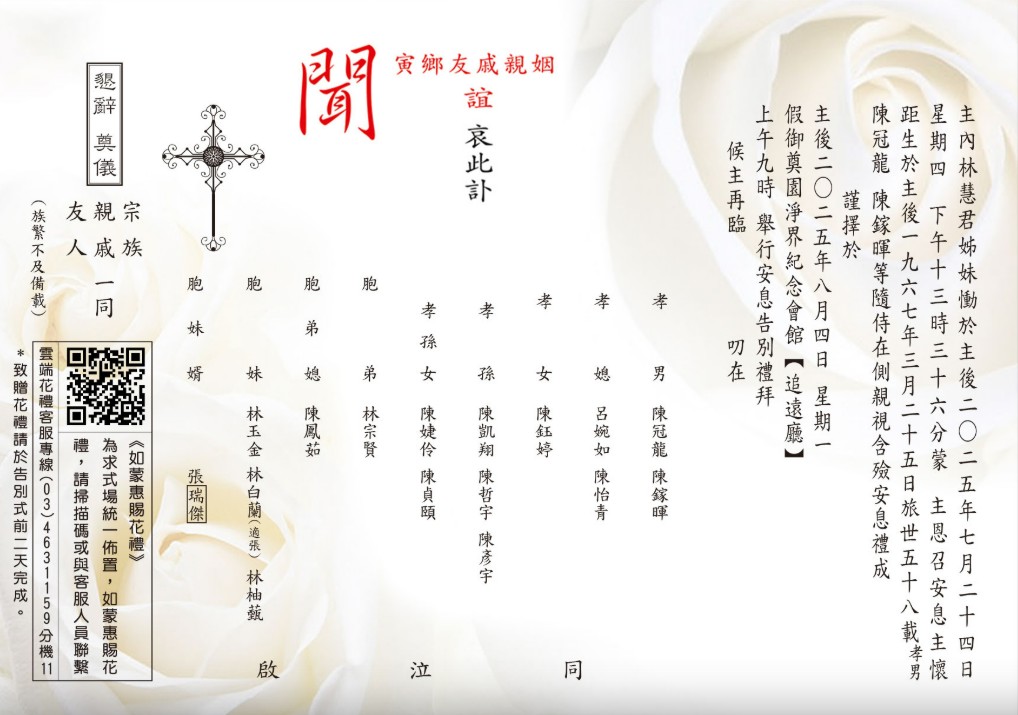 主內林慧君姊妹慟於主後二〇二五年七月二十四日
星期四 下午十三時三十六分蒙 主恩召安息主懷
距生於主後一九六七年三月二十五日旅世五十八載孝男
陳冠龍 陳鎵暉等隨侍在側親視含殮安息禮成
謹擇於
主後二〇二五年八月四日 星期一
假御奠園淨界紀念會館【追遠廳】
上午九時 舉行安息告別禮拜
候主再臨 叨在
姻親戚友鄉寅
誼
哀此訃
聞
孝男 陳冠龍 陳鎵暉
孝媳 呂婉如 陳怡青
孝女 陳鈺婷
孝孫 陳凱翔 陳哲宇 陳彥宇
孝孫女 陳婕伶 陳貞頤
胞弟 林宗賢
胞弟媳 陳鳳茹
胞妹 林玉金 林白蘭(適張) 林柚蓺
胞妹婿 張瑞傑
同泣啟
宗族
親戚一同
友人
(族繁不及備載)
懇辭 奠儀
《如蒙惠賜花禮》
為求式場統一佈置，如蒙惠賜花
禮，請掃描碼或與客服人員聯繫
雲端花禮客服專線(03)4631159分機11
*致贈花禮請於告別式前二天完成。